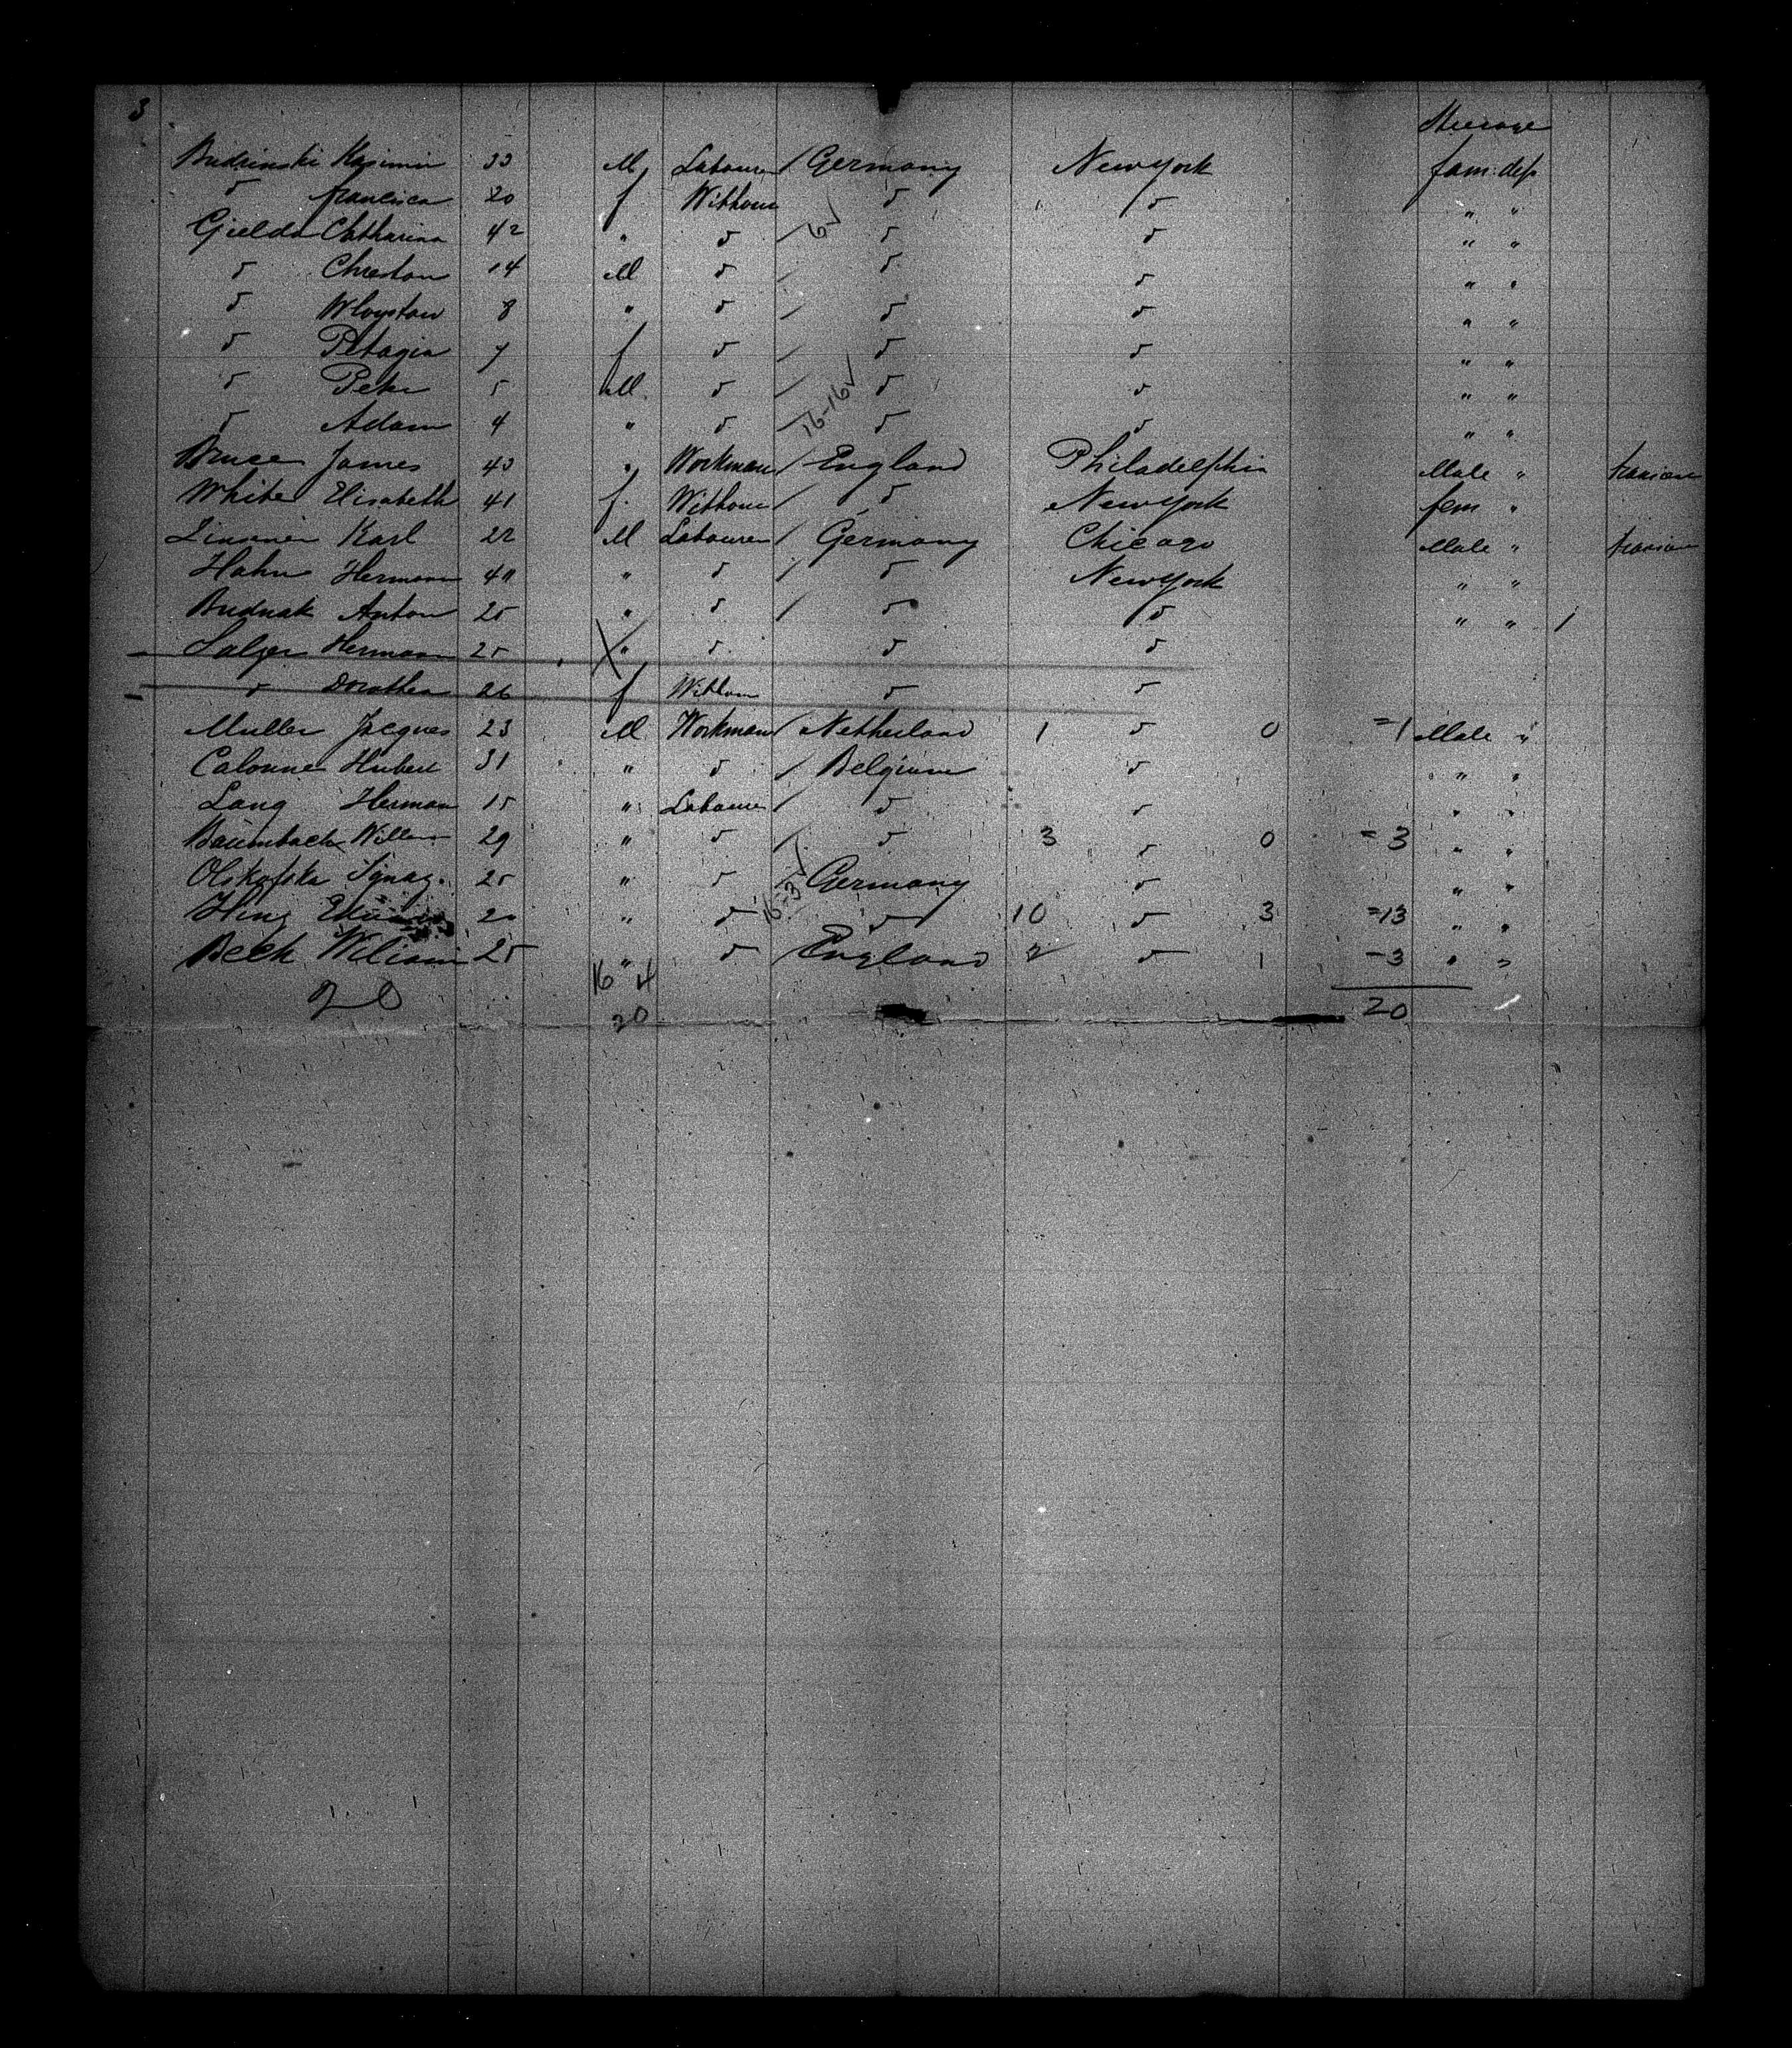 3 Steerage
Budzinski Kasimir 33 M Labourer / Germany New York fam: dep
" Francisca 20 f Without " " " "
Gielda Catharina 42 " " / 6✓ " " " "
" Chreston 14 M " / " " " "
" Wloystow 8 " " / " " " "
" Petagia 7 f " / " " " "
" Peter 5 M " / " " " "
" Adam 4 " " / 16-16✓ " " " "
Bruce James 43 " Workman / England Philadelphia Male "
White Elisabeth 41 f. Without / " New York fem "
Karl 22 M Labourer / Germany Chicago Male "
Hahn Hermann 40 " " / " New York " "
Budnak Anton 25 " " / " " " " 1
Salger Hermann 25 X " " " "
" Dorothea 26 f Without " "
Muller Jacques 23 M Workman / Netherland 1 " 0 =1 Male "
Calonne Hubert 31 " " / Belgium " " "
Lang Herman 15 " Labourer / " " " "
Baumbach Willem 29 " " / " 3 " 0 =3 " "
Olskofska Ignaz. 25 " " / 16-3✓ Germany " " "
Hing 20 " " " 10 " 3 =13 " "
Beck Wiliam 25 " " England 2 " 1 -3 " "
20 16 4 20
20